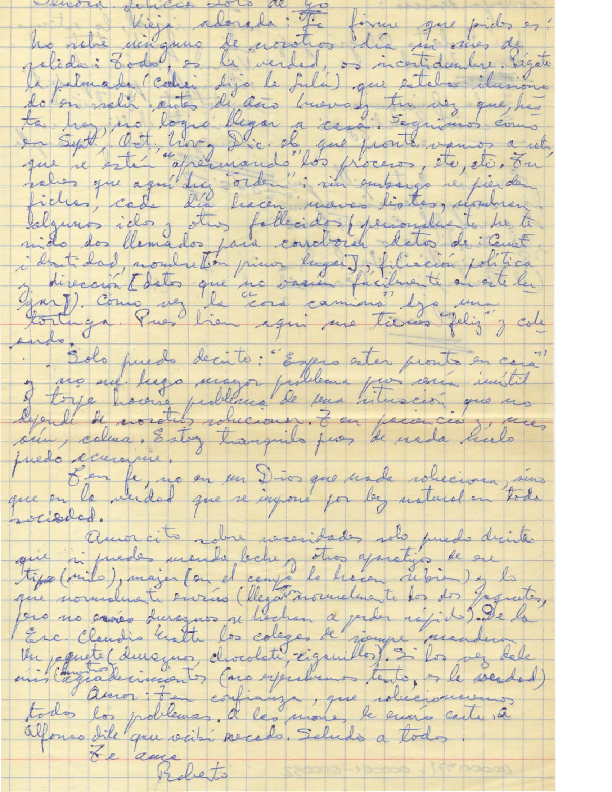 Señora
Vieja adorada: Te firme que pides es:
no sabe ninguno de nosotros día ni mes de
salida: Todo, es la verdad, es incertidumbre. Pégate
la palmada (cachai dijo le Lulú) que estaba ilusiona
do en salir antes de Año Nuevo y tu vez que, has
ta hoy, no logro llegar a casa. Seguimos como
en Sept, Oct, Nov y Dic. el que pronto vamos a salir,
que se están "apremiando" los procesos, etc, etc. Tu
sabes que aquí hay "orden" i sin embargo se pierden
fichas, cada día hacen nuevas listas, nombran
algunos idos y otros fallecidos (personalmente he te
nido dos llamados para corroborar datos de: Carnet
identidad, nombre [en primer lugar], filiación política
y dirección [datos que no varían facilmente en este lu
gar]). Como vez la "cosa camina" dijo una
tortuga. Pues bien aqui me tienes "feliz" y cole
ando.
Solo puedo decirte: "Espero estar pronto en casa"
y no me hago mayor problema pues sería inútil
y torpe hacerse problema de una situación que no
depende de nosotros solucionar. Ten paciencia y, mas
aún, calma. Estoy tranquilo pues de nada malo
puedo acusarme.
Ten fe, no en un Dios que nada soluciona, sino
que en la verdad que se impone por ley natural en toda
sociedad.
Amorcito sobre necesidades solo puedo decirte
que si puedes manda leche y otros aparatijos de ese
tipo (milo), mayor [en el campo lo hacen subir] y lo
que normalmente envías (llegaron normalmente los dos paquetes,
pero no envíes duraznos se hechan a perder rápido). De la
Esc. Claudio Matte los colegas de siempre mandaron
un paquete (duraznos, chocolate, ciguirrillos). Si los vez dale
mis (muchos) agradecimientos (no esperabamos tanto, es la verdad)
Amor: Ten confianza, que solucionaremos
todos los problemas. A las nonas le envio carta. A
Alfonso dile que recibí recado. Saludo a todos.
Te ama
Roberto